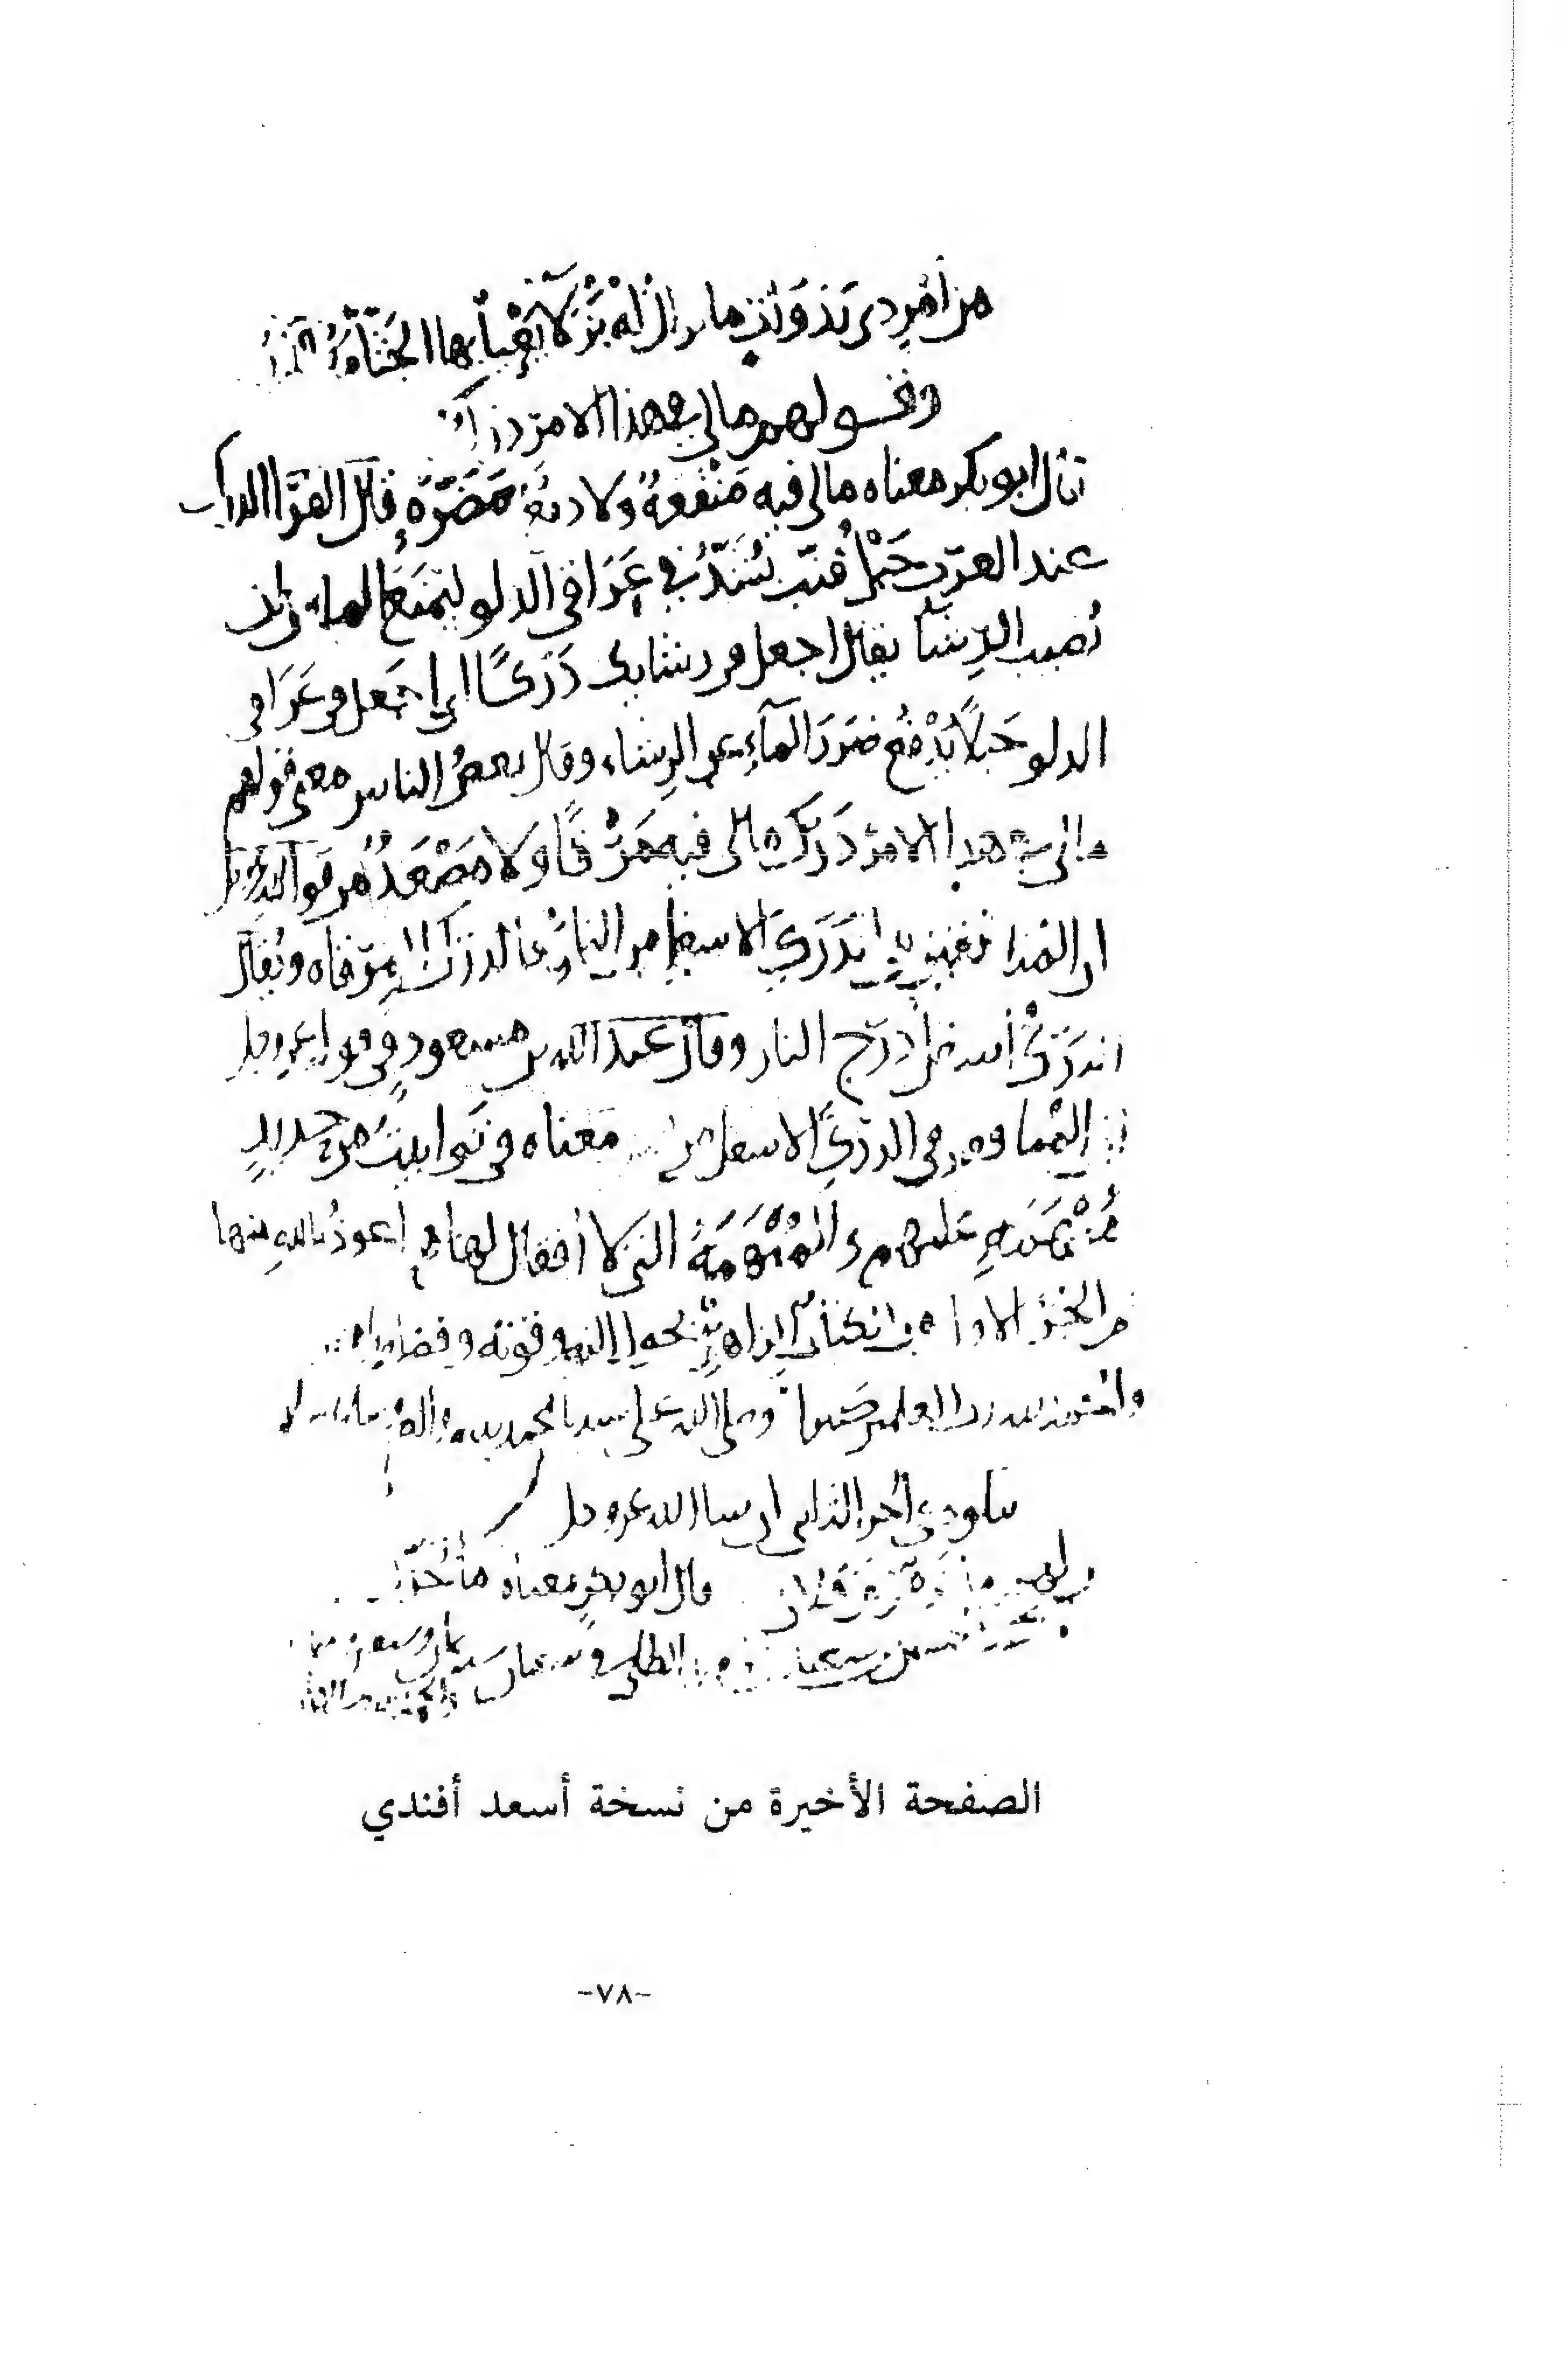 من امر ذى بدوات ما تزال له بزلاء يعيا بها الجثامة
وقولهم مالي في هذا الامر درك
قال ابو بكر معناه مالى فيه مَنْفَعةٌ ولا دفع مَضَرَّةٍ قال الفرّا الدرك
عند العرب حَبْل قنّب يُشَدُّ في عَرَاقى الدلو ليمنع الماء من ان
نُصيب الرِشآ يقال اجعل فى رشايك دَرَكًا اى اجعل فى عَرَاقى
الدلو حَبلًا يَدْفعُ ضرَرَ المآءِ عن الرِشاء وقال بعضُ الناس معنى قولهم
مالى في هذا الامر دَرَك مالى فيه مَرْقًا ولا مَصْعَدٌ من قول الله عز وجل
ان المنافقين في الدَرَكِ الاسفل من النار فالدرك المرقاه ويُقال
الدَرَكُ أسفل دَرَج النار وقال عبد الله بن مسعودٍ فى قوله عز وجل
ان المنافقين فى الدَرَكِ الاسفل من معناه فى توابيتَ من حديدٍ
مُبْهَمَةٍ عليهم والمُبْهَمَةُ التى لا أقفال لها أعوذُ بالله منها
الجُزُ الاول من كتاب الزاهر بحول الله وقوته
والحمد لله رب العلمين كثيرا وصلى الله على سيدنا محمد نبيه واله
يتلوه فى الجز الثانى ان شا الله عز وجل
قال ابو بكرٍ معناه
الصفحة الأخيرة من نسخة أسعد أفندي
-٧٨-